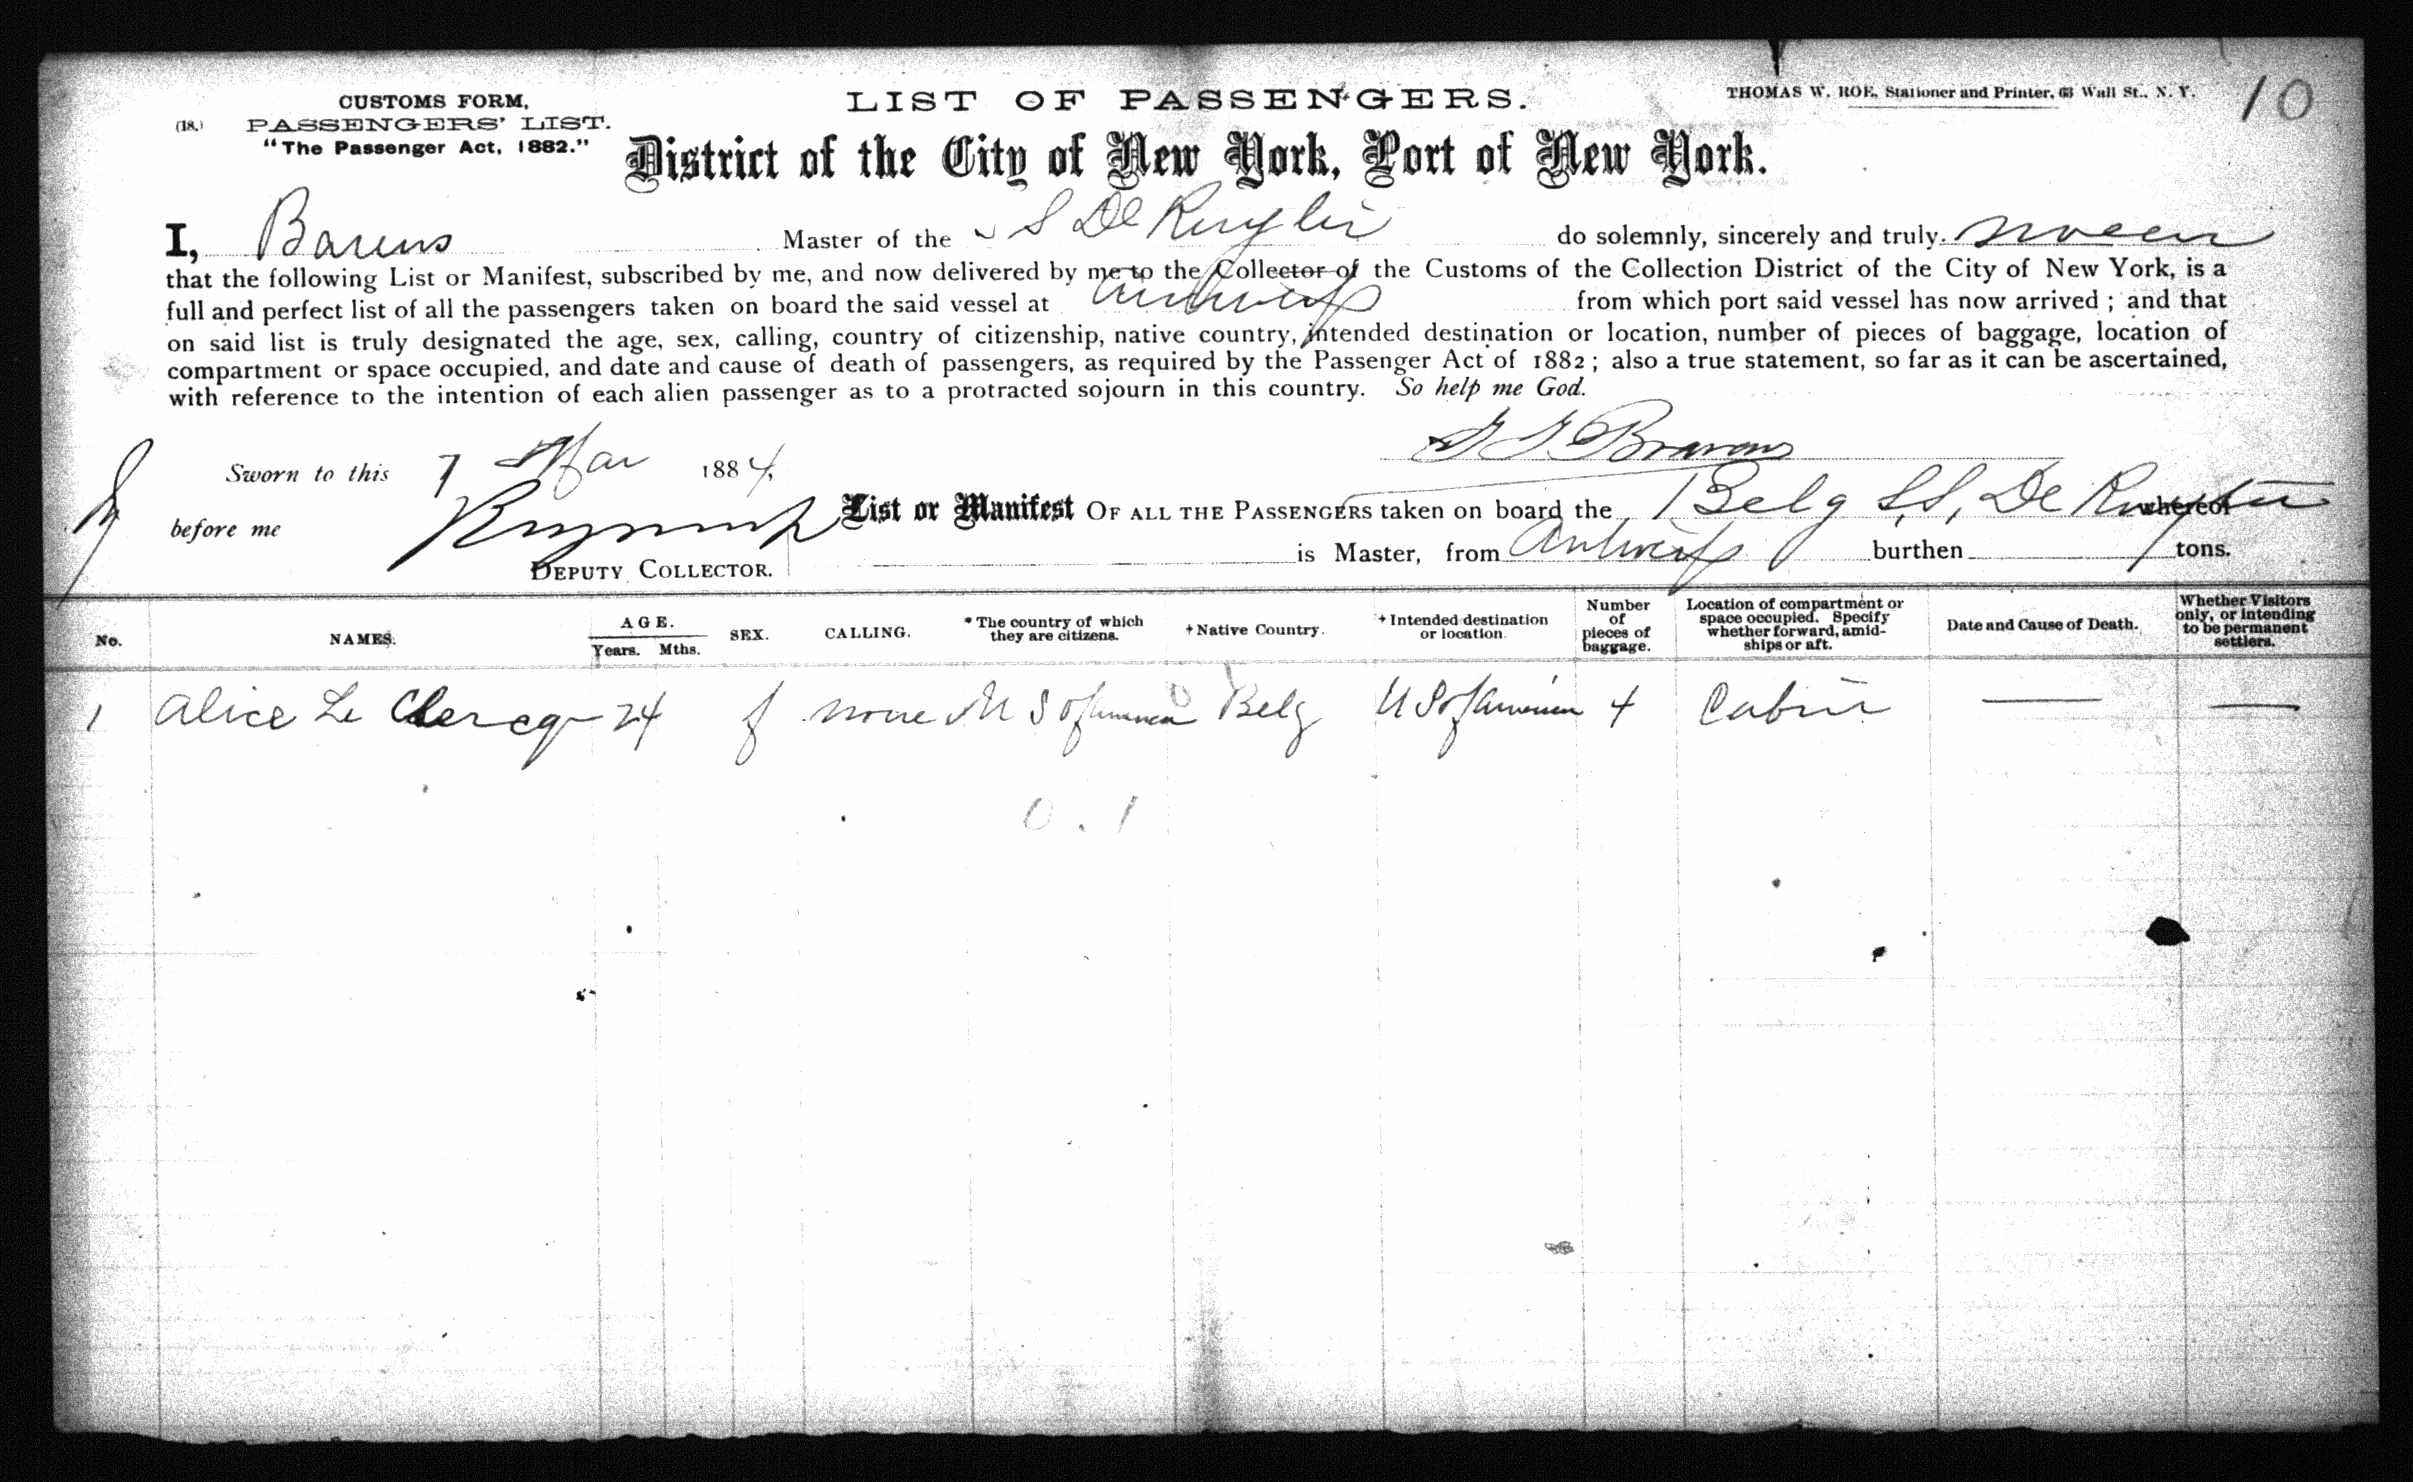 CUSTOMS FORM,
(18.) PASSENGERS' LIST.
"The Passenger Act, 1882."
LIST OF PASSENGERS.
THOMAS W. ROE, Stationer and Printer, 63 Wall St., N. Y.
10
District of the City of New York, Port of New York.
I, Barens Master of the S De Ruyter do solemnly, sincerely and truly swear
that the following List or Manifest, subscribed by me, and now delivered by me to the Collector of the Customs of the Collection District of the City of New York, is a
full and perfect list of all the passengers taken on board the said vessel at Antwerp from which port said vessel has now arrived ; and that
on said list is truly designated the age, sex, calling, country of citizenship, native country, intended destination or location, number of pieces of baggage, location of
compartment or space occupied, and date and cause of death of passengers, as required by the Passenger Act of 1882 ; also a true statement, so far as it can be ascertained,
with reference to the intention of each alien passenger as to a protracted sojourn in this country. So help me God.
Sworn to this 7 Mar 1884
before me
DEPUTY COLLECTOR.
List or Manifest OF ALL THE PASSENGERS taken on board the Belg S.S. De Ruyter whereof
is Master, from Antwerp burthen tons.
No. NAMES. AGE. Years. Mths. SEX. CALLING. * The country of which they are citizens. + Native Country. + Intended destination or location. Number of pieces of baggage. Location of compartment or space occupied. Specify whether forward, amidships or aft. Date and Cause of Death. Whether Visitors only, or intending to be permanent settlers.
1 Alice Le Clercq 24 f none U S of America Belg U S of America 4 Cabin
0.1